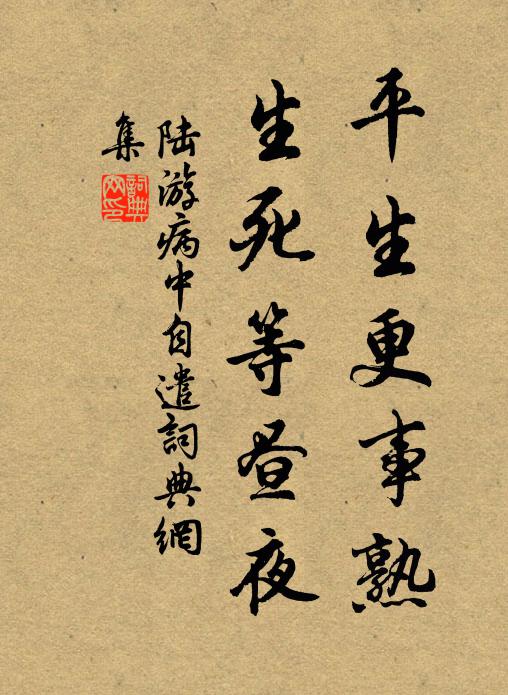 平生更事熟
生死等昼夜
陆游病中自遣詞典網
集
詞典
网印